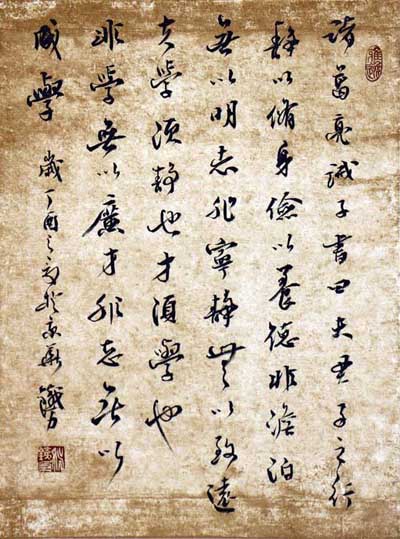 諸葛亮誡子書曰夫君子之行
靜以脩身儉以養德非澹泊
無以明志非寧靜無以致遠
夫學須靜也才須學也
非學無以廣才非志無以
成學
歲丁酉之於京華